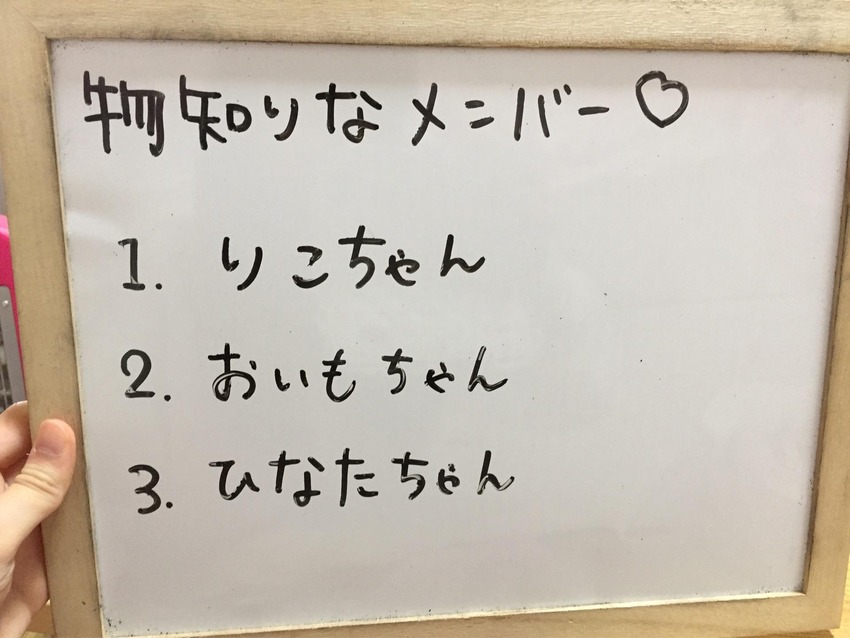 物知りなメンバー♡
1. りこちゃん
2. おいもちゃん
3. ひなたちゃん